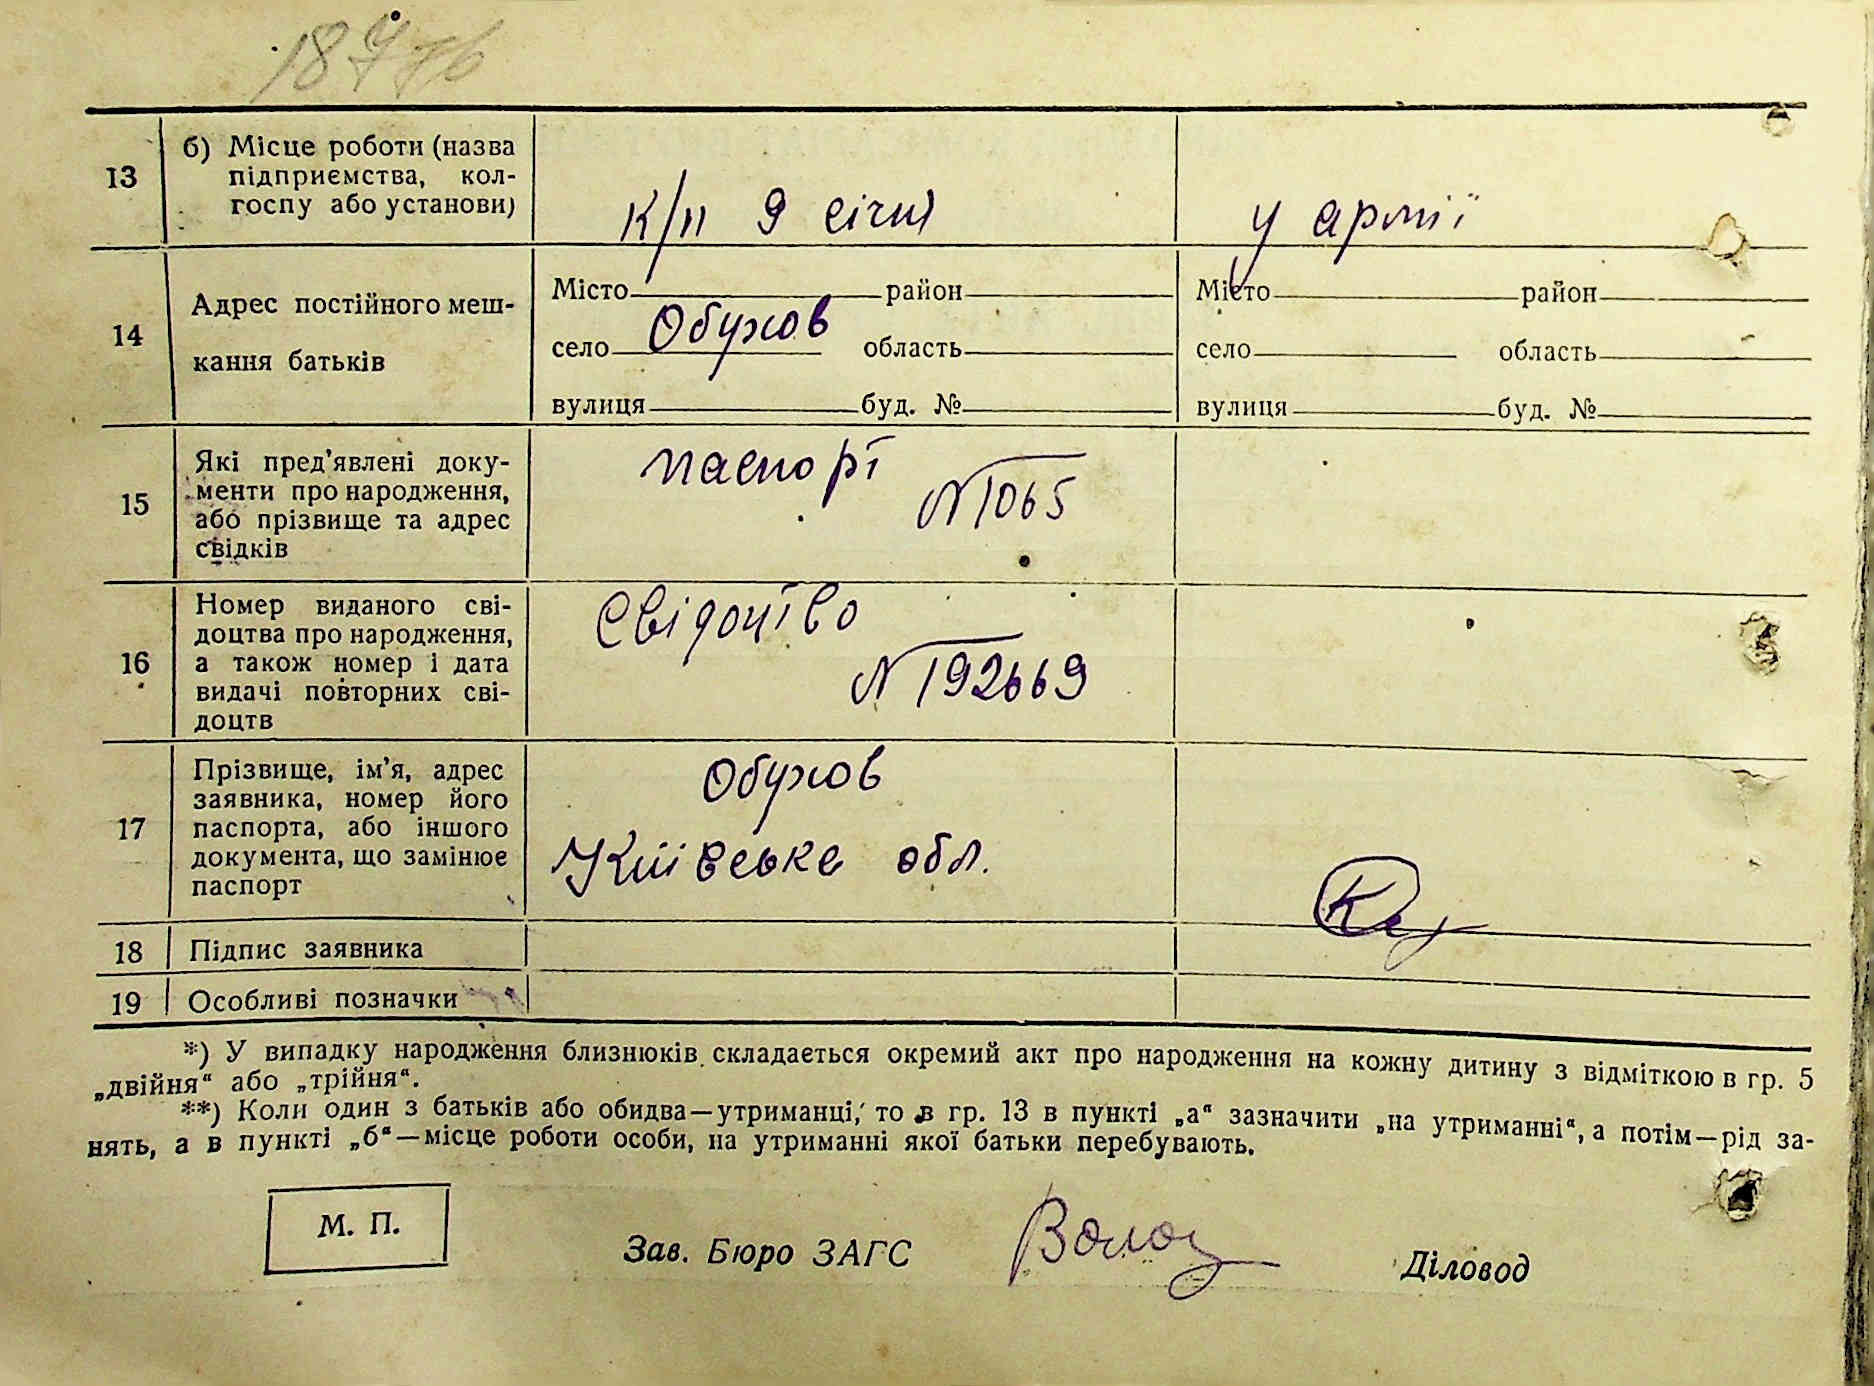 13
б) Місце роботи (назва
підприємства, кол-
госпу або установи)
к/п 9 січня
у армії
14
Адрес постійного меш-
кання батьків
Місто район
село Обухов область
вулиця буд. №
Місто район
село область
вулиця буд. №
15
Які пред’явлені доку-
менти про народження,
або прізвище та адрес
свідків
паспорт
№ 1065
16
Номер виданого сві-
доцтва про народження,
а також номер і дата
видачі повторних сві-
доцтв
Свідоцтво
№ 192669
17
Прізвище, ім’я, адрес
заявника, номер його
паспорта, або іншого
документа, що замінює
паспорт
Обухов
Київське обл.
18
Підпис заявника
19
Особливі позначки
*) У випадку народження близнюків складається окремий акт про народження на кожну дитину з відміткою в гр. 5
„двійня“ або „трійня“.
**) Коли один з батьків або обидва—утриманці, то в гр. 13 в пункті „а“ зазначити „на утриманні“, а потім—рід за-
нять, а в пункті „б“—місце роботи особи, на утриманні якої батьки перебувають.
М. П.
Зав. Бюро ЗАГС
Діловод